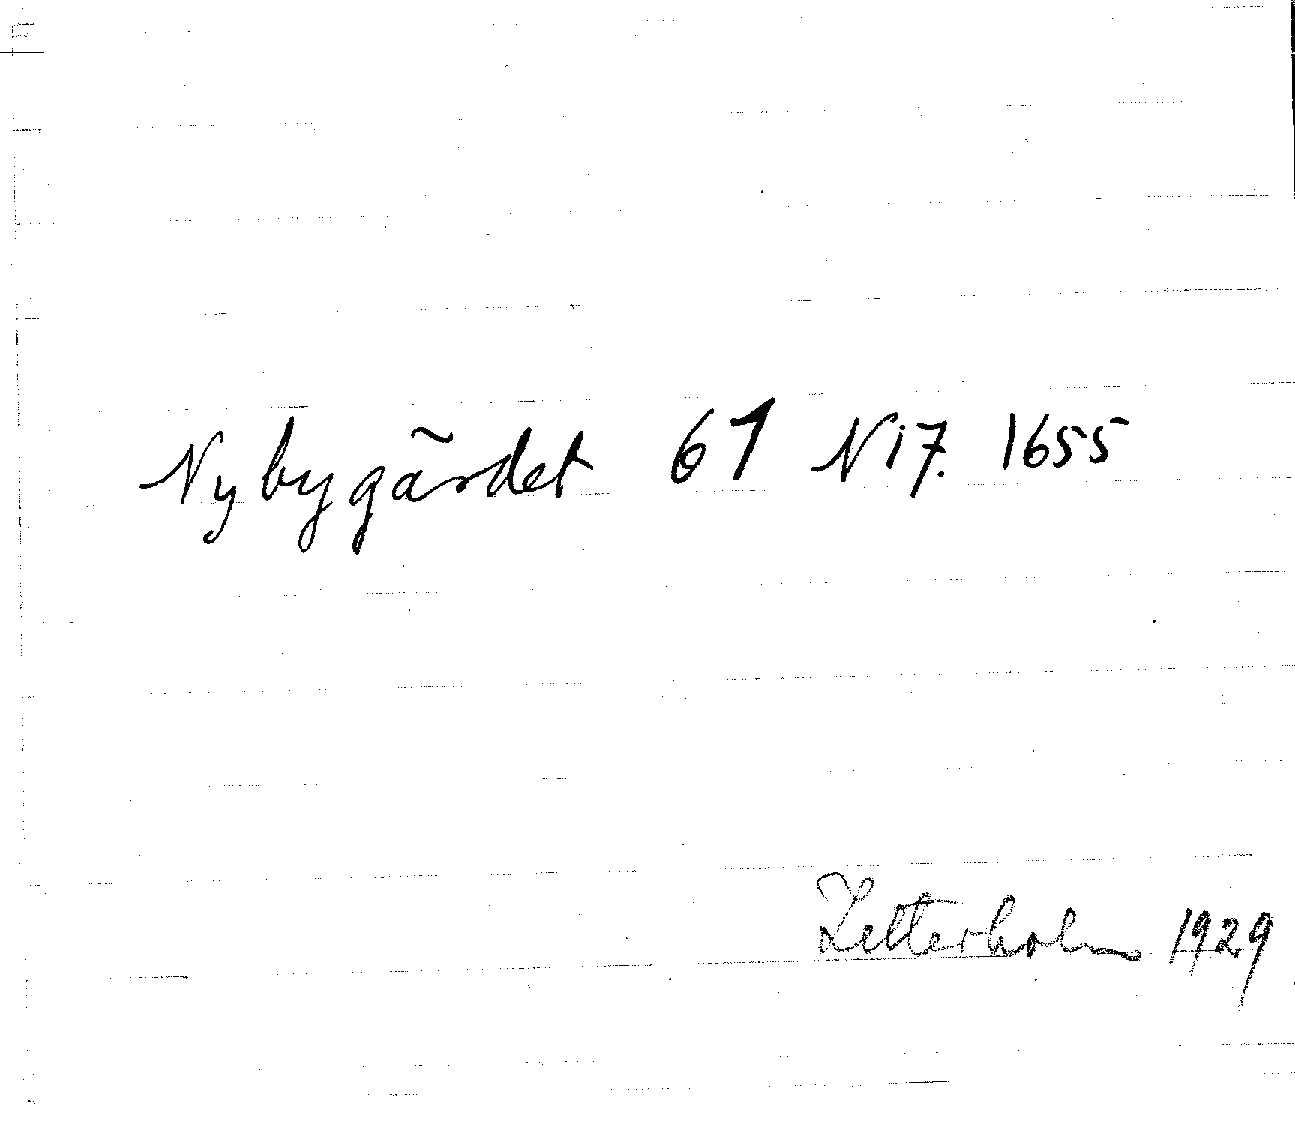 Nybygärdet 61 N 17. 1655
Zetterholm 1929